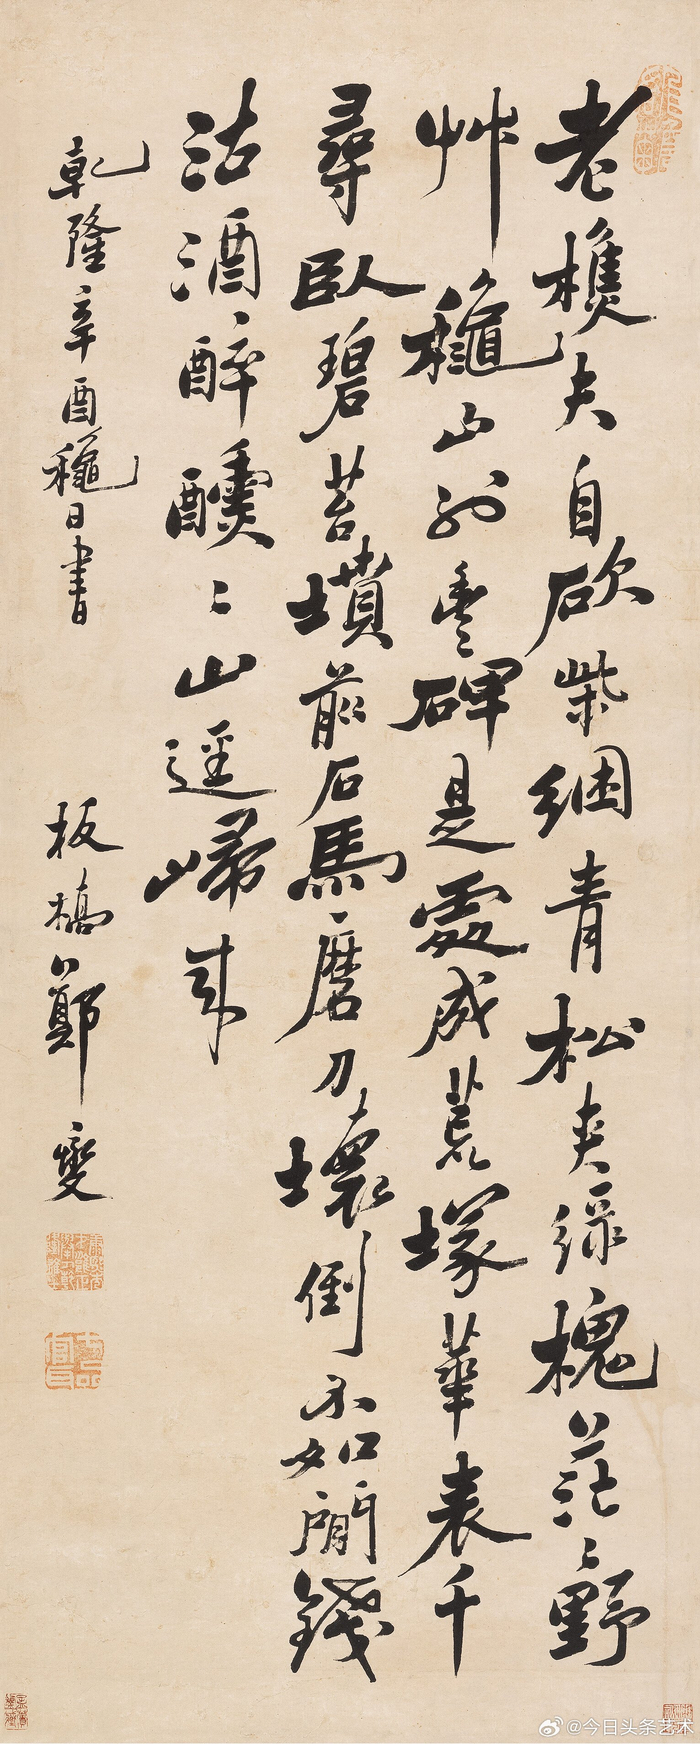 老樵夫自砍柴綑青松夾綠槐茫〻野
艸龝山外豐碑是處成荒塚華表千
尋臥碧苔墳前石馬磨刀壞倒不如閒錢
沽酒醉醺〻山逕歸來
乾隆辛酉龝日書
板橋鄭燮
@今日头条艺术